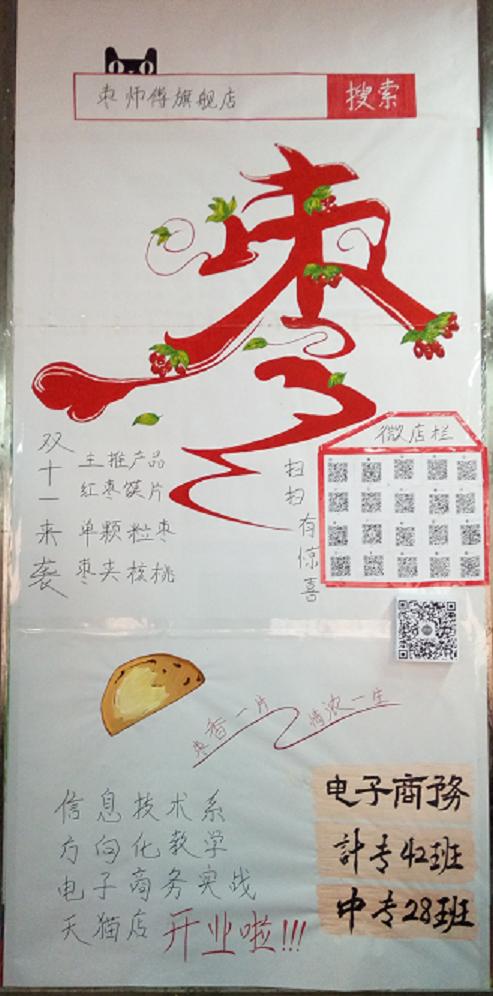 枣师傅旗舰店
搜索
枣
双十一来袭
主推产品
红枣馍片
单颗粒枣
枣夹核桃
扫扫有惊喜
微店栏
枣香一片 情浓一生
信息技术系
方向化教学
电子商务实战
天猫店开业啦!!!
电子商務
計专42班
中专28班